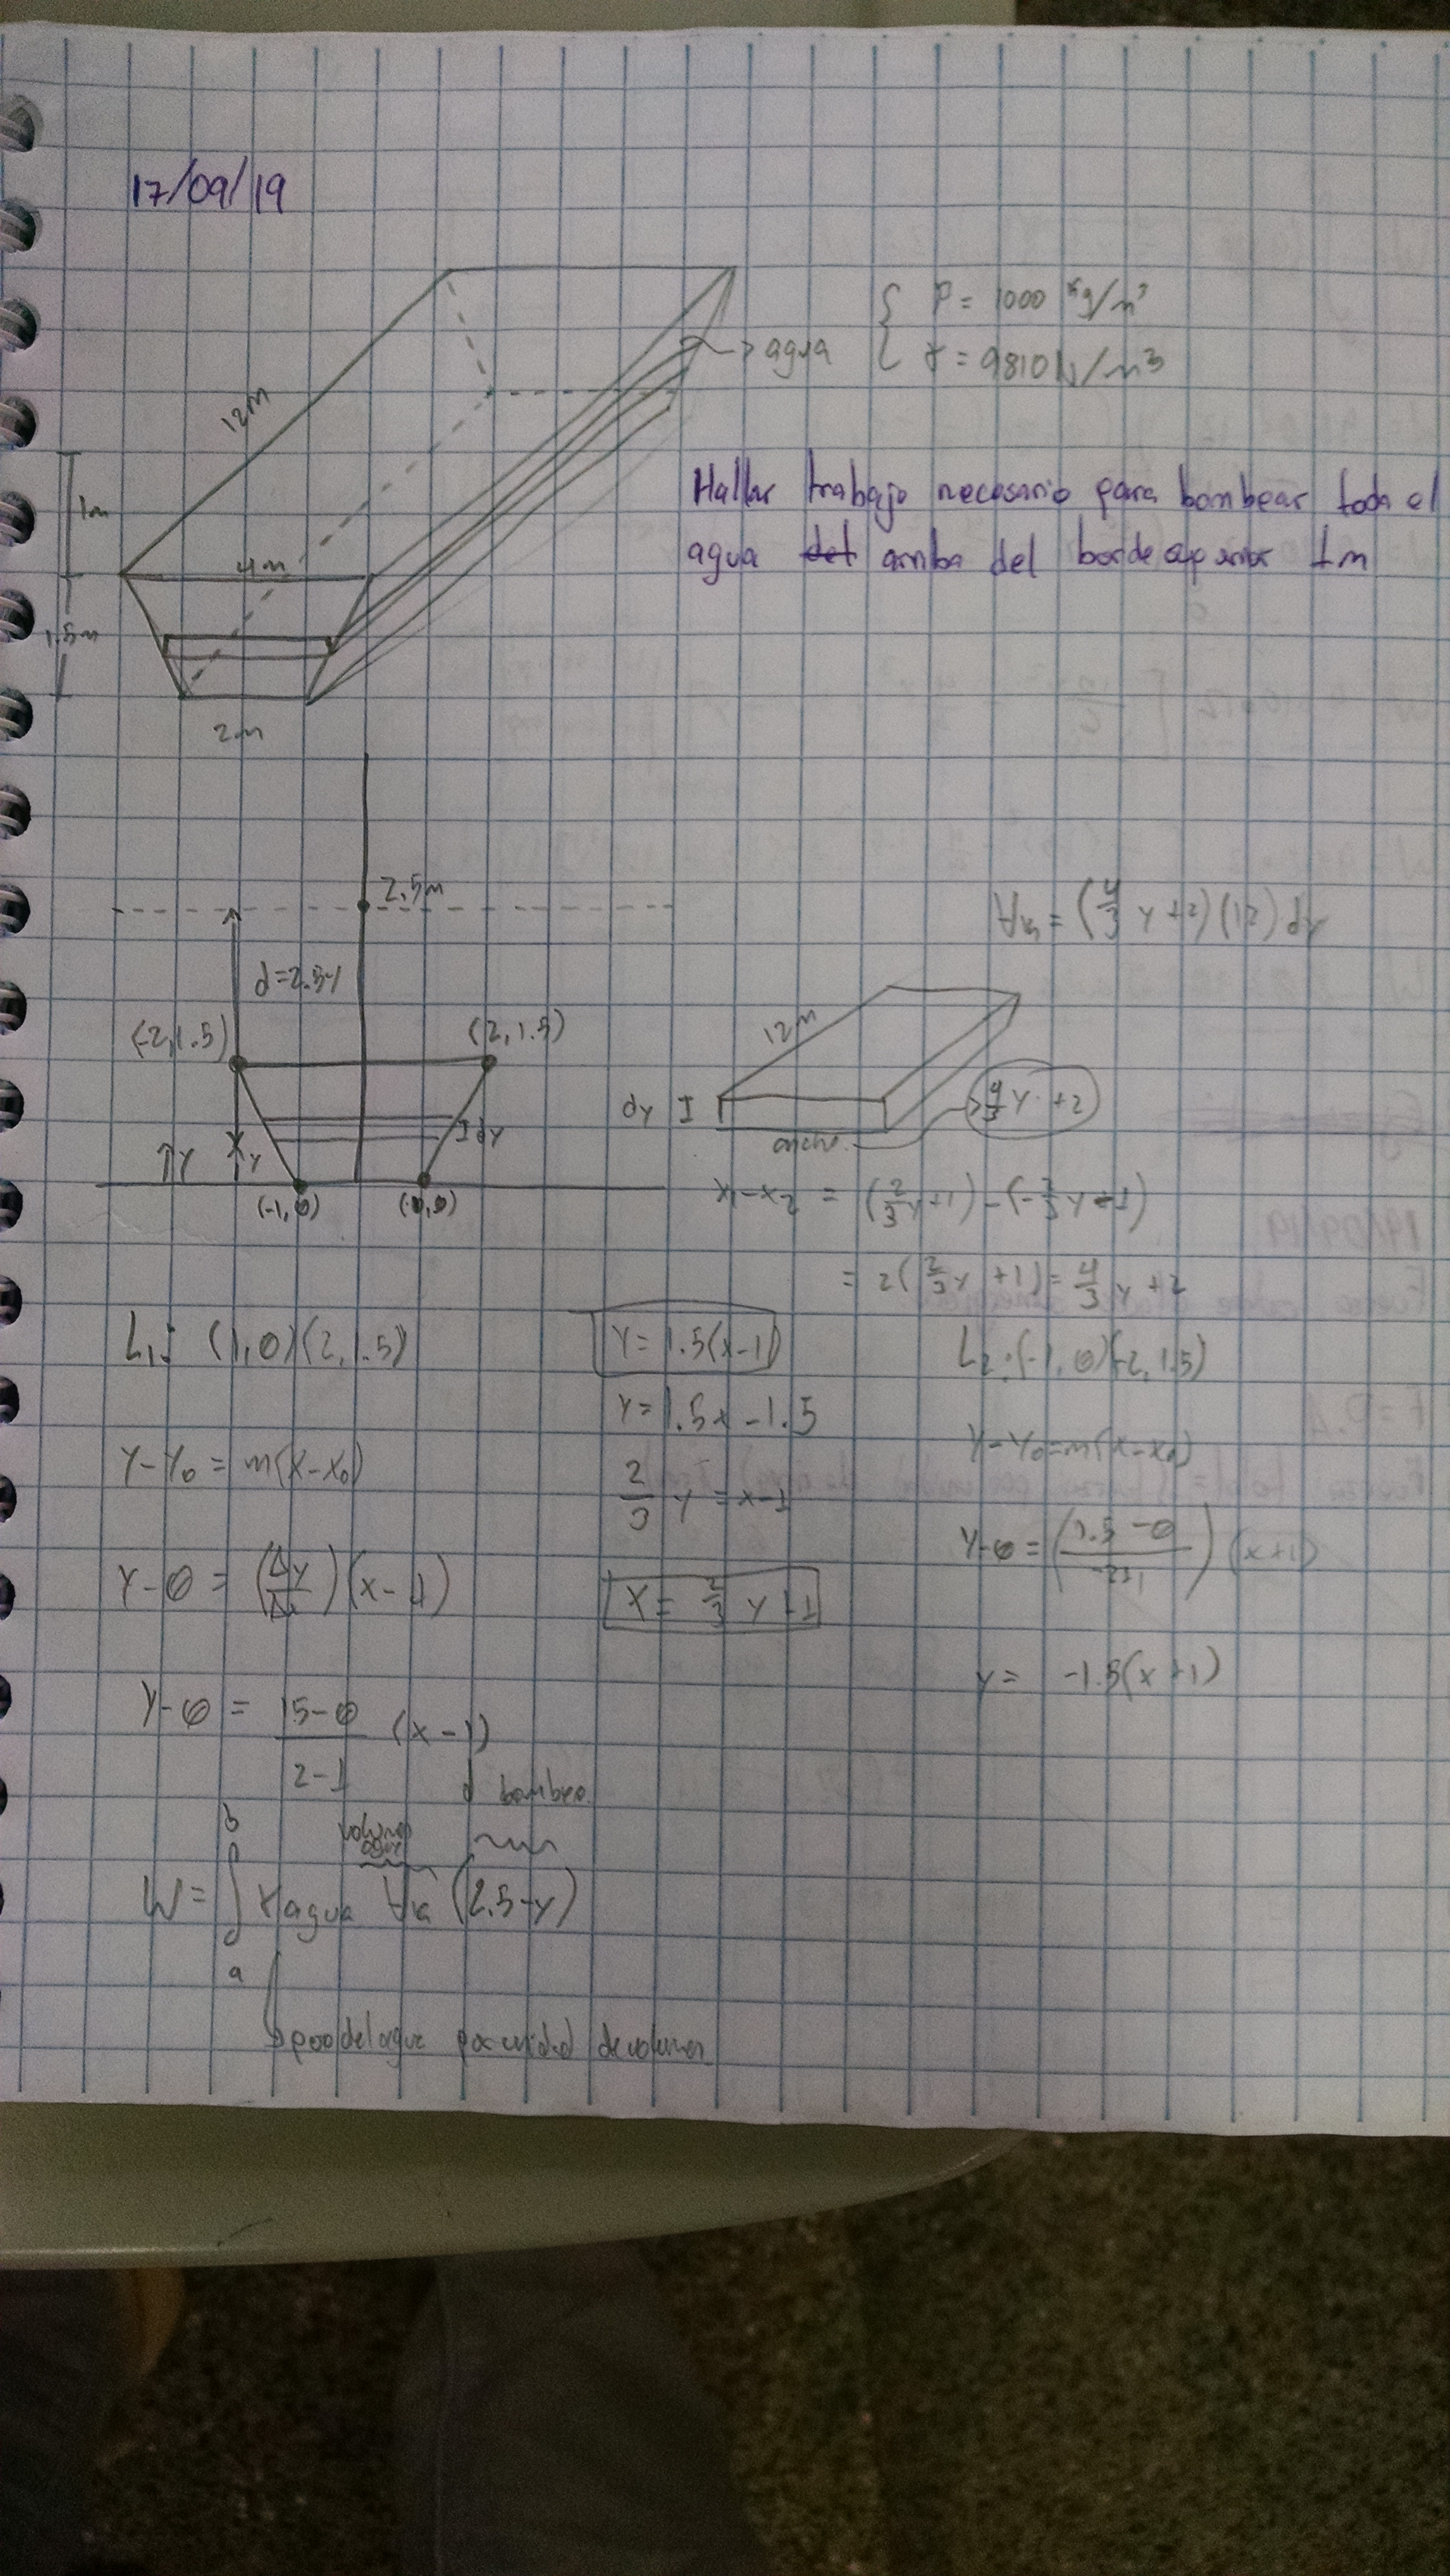 17/09/19
12m
1m
4m
1.5m
2m
agua
ρ = 1000 kg/m³
γ = 9810 N/m³
Hallar trabajo necesario para bombear toda el
agua del arriba del borde superior 1m
2.5m
d=2.5-y
(-2,1.5)
(2,1.5)
↑Y
y
dy
(-1,0)
V = (4/3 y +2)(12) dy
12m
dy
ancho
4/3 y +2
x₁-x₂ = (2/3 y+1) - (-2/3 y -1)
= 2(2/3 y +1) = 4/3 y +2
L₁: (1,0)(2,1.5)
Y-Y₀ = m(X-X₀)
Y-0 = (Δy/Δx)(x-1)
Y-0 = 15-0 / 2-1 (x-1)
Y= 1.5(x-1)
Y= 1.5x -1.5
2/3 y = x-1
X = 2/3 y +1
L₂: (-1,0)(-2,1.5)
Y-Y₀=m(x-x₀)
y-0 = (1.5-0 / -2+1)(x+1)
y= -1.5(x+1)
d bombeo
volumen
agua
W = ∫ₐᵇ γagua V (2.5-y)
peso del agua por unidad de volumen